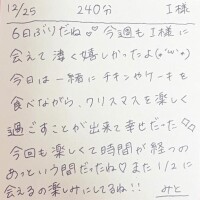 12/25 240分 I様
6日ぶりだね♡今週もI様に
会えて凄く嬉しかったよ(*´꒳`*)
今日は一緒にチキンやケーキを
食べながら、クリスマスを楽しく
過ごすことが出来て幸せだった♡♡
今回も楽しくて時間が経つの
あっという間だったね♡また1/2に
会えるの楽しみにしてるね!!
みと